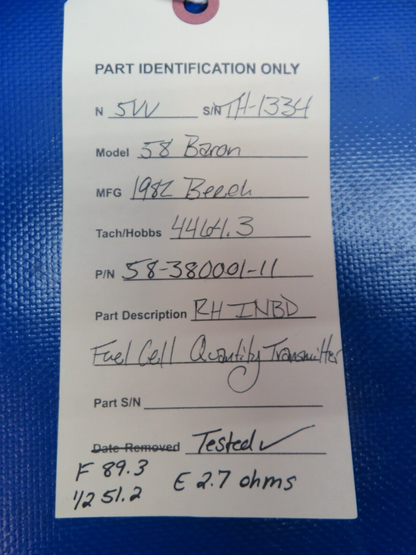 PART IDENTIFICATION ONLY
N 5W S/N TH-1334
Model 58 Baron
MFG 1982 Beech
Tach/Hobbs 4464.3
P/N 58-380001-11
Part Description RH INBD
Fuel Cell Quantity Transmitter
Part S/N
Date Removed Tested ✓
F 89.3
1/2 51.2 E 2.7 ohms